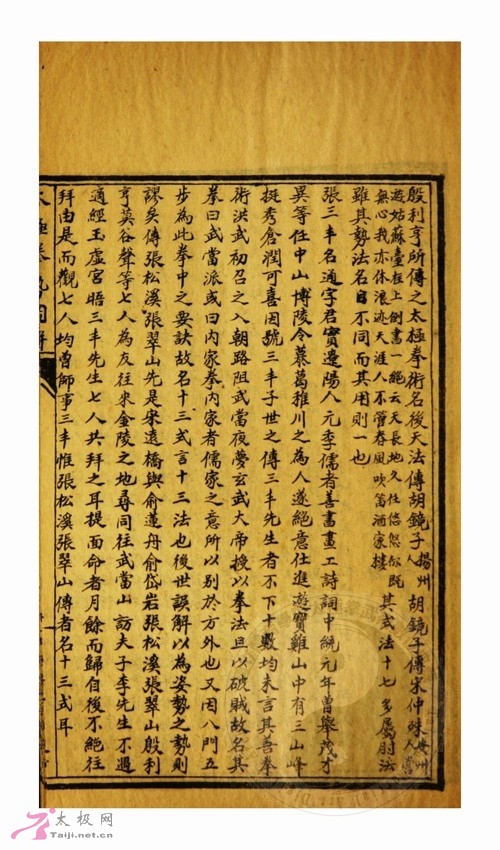 殷利亨所傳之太極拳術名後天法傳胡鏡子揚州胡鏡子傳宋仲殊安州人嘗
遊姑蘇臺柱上倒書一絕云天長地久任悠悠你既
無心我亦休浪迹天涯人不管春風吹笛酒家樓
其式法十七多屬肘法
雖其勢法名目不同而其用則一也
張三丰名通字君實遼陽人元季儒者善書畫工詩詞中統元年曾舉茂才
異等任中山博陵令慕葛稚川之為人遂絕意仕進遊寶雞山中有三山峰
挺秀倉潤可喜因號三丰子世之傳三丰先生者不下十數均未言其善拳
術洪武初召之入朝路阻武當夜夢玄武大帝授以拳法且以破賊故名其
拳曰武當派或曰内家拳内家者儒家之意所以别於方外也又因八門五
步為此拳中之要訣故名十三式言十三法也後世誤解以為姿勢之勢則
謬矣傳張松溪張翠山先是宋遠橋與俞蓮舟俞岱岩張松溪張翠山殷利
亨莫谷聲等七人為友往來金陵之地尋同往武當山訪夫子李先生不遇
適經玉虛宮晤三丰先生七人共拜之耳提面命者月餘而歸自後不絕往
拜由是而觀七人均曾師事三丰惟張松溪張翠山傳者名十三式耳
太极网
Taiji.net.cn